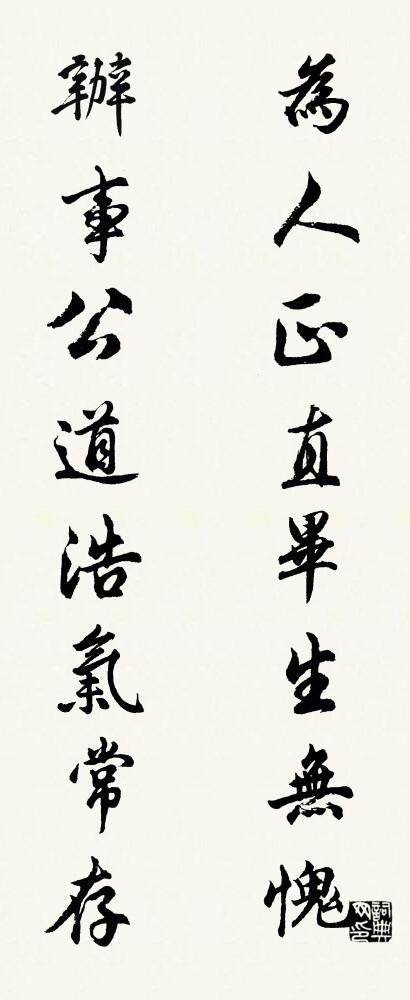 為人正直畢生無愧
辦事公道浩氣常存
詞典網印